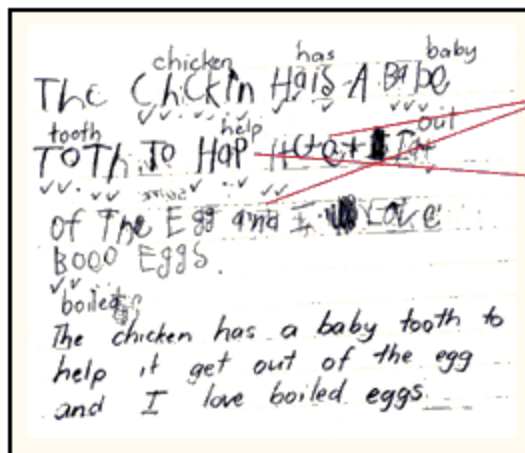 chicken has baby
The ChiCkIn HaIs A BaBe
tooth help out
ToTh To HaP
of The Egg and I Love
Booo Eggs.
boiled
The chicken has a baby tooth to
help it get out of the egg
and I love boiled eggs